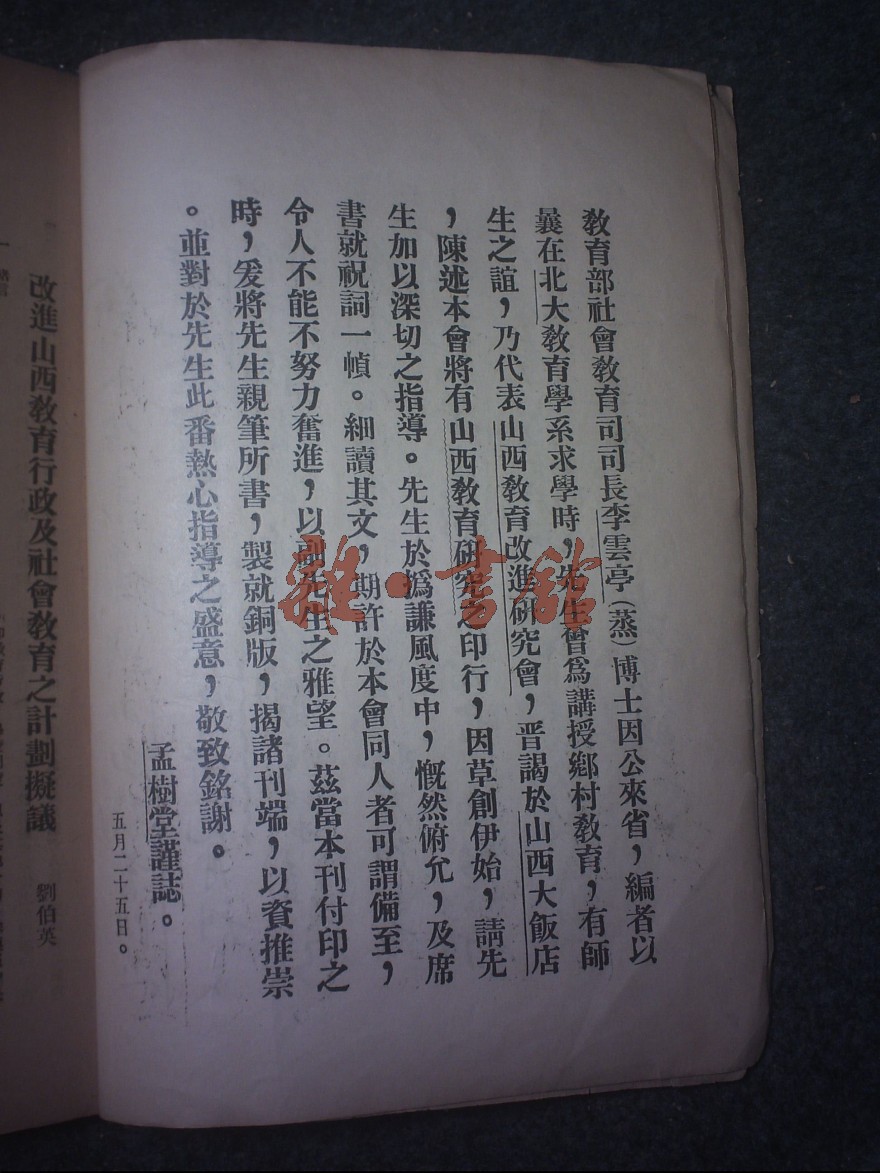 教育部社會教育司司長李雲亭（蒸）博士因公來省，編者以
曩在北大教育學系求學時，先生曾爲講授鄉村教育，有師
生之誼，乃代表山西教育改進研究會，晋謁於山西大飯店
，陳述本會將有山西教育研究之印行，因草創伊始，請先
生加以深切之指導。先生於撝謙風度中，慨然俯允，及席
書就祝詞一幀。細讀其文，期許於本會同人者可謂備至，
令人不能不努力奮進，以副先生之雅望。茲當本刊付印之
時，爰將先生親筆所書，製就銅版，揭諸刊端，以資推崇
。並對於先生此番熱心指導之盛意，敬致銘謝。
孟樹堂謹誌。
五月二十五日。
改進山西教育行政及社會教育之計劃擬議
劉伯英
雜·書館